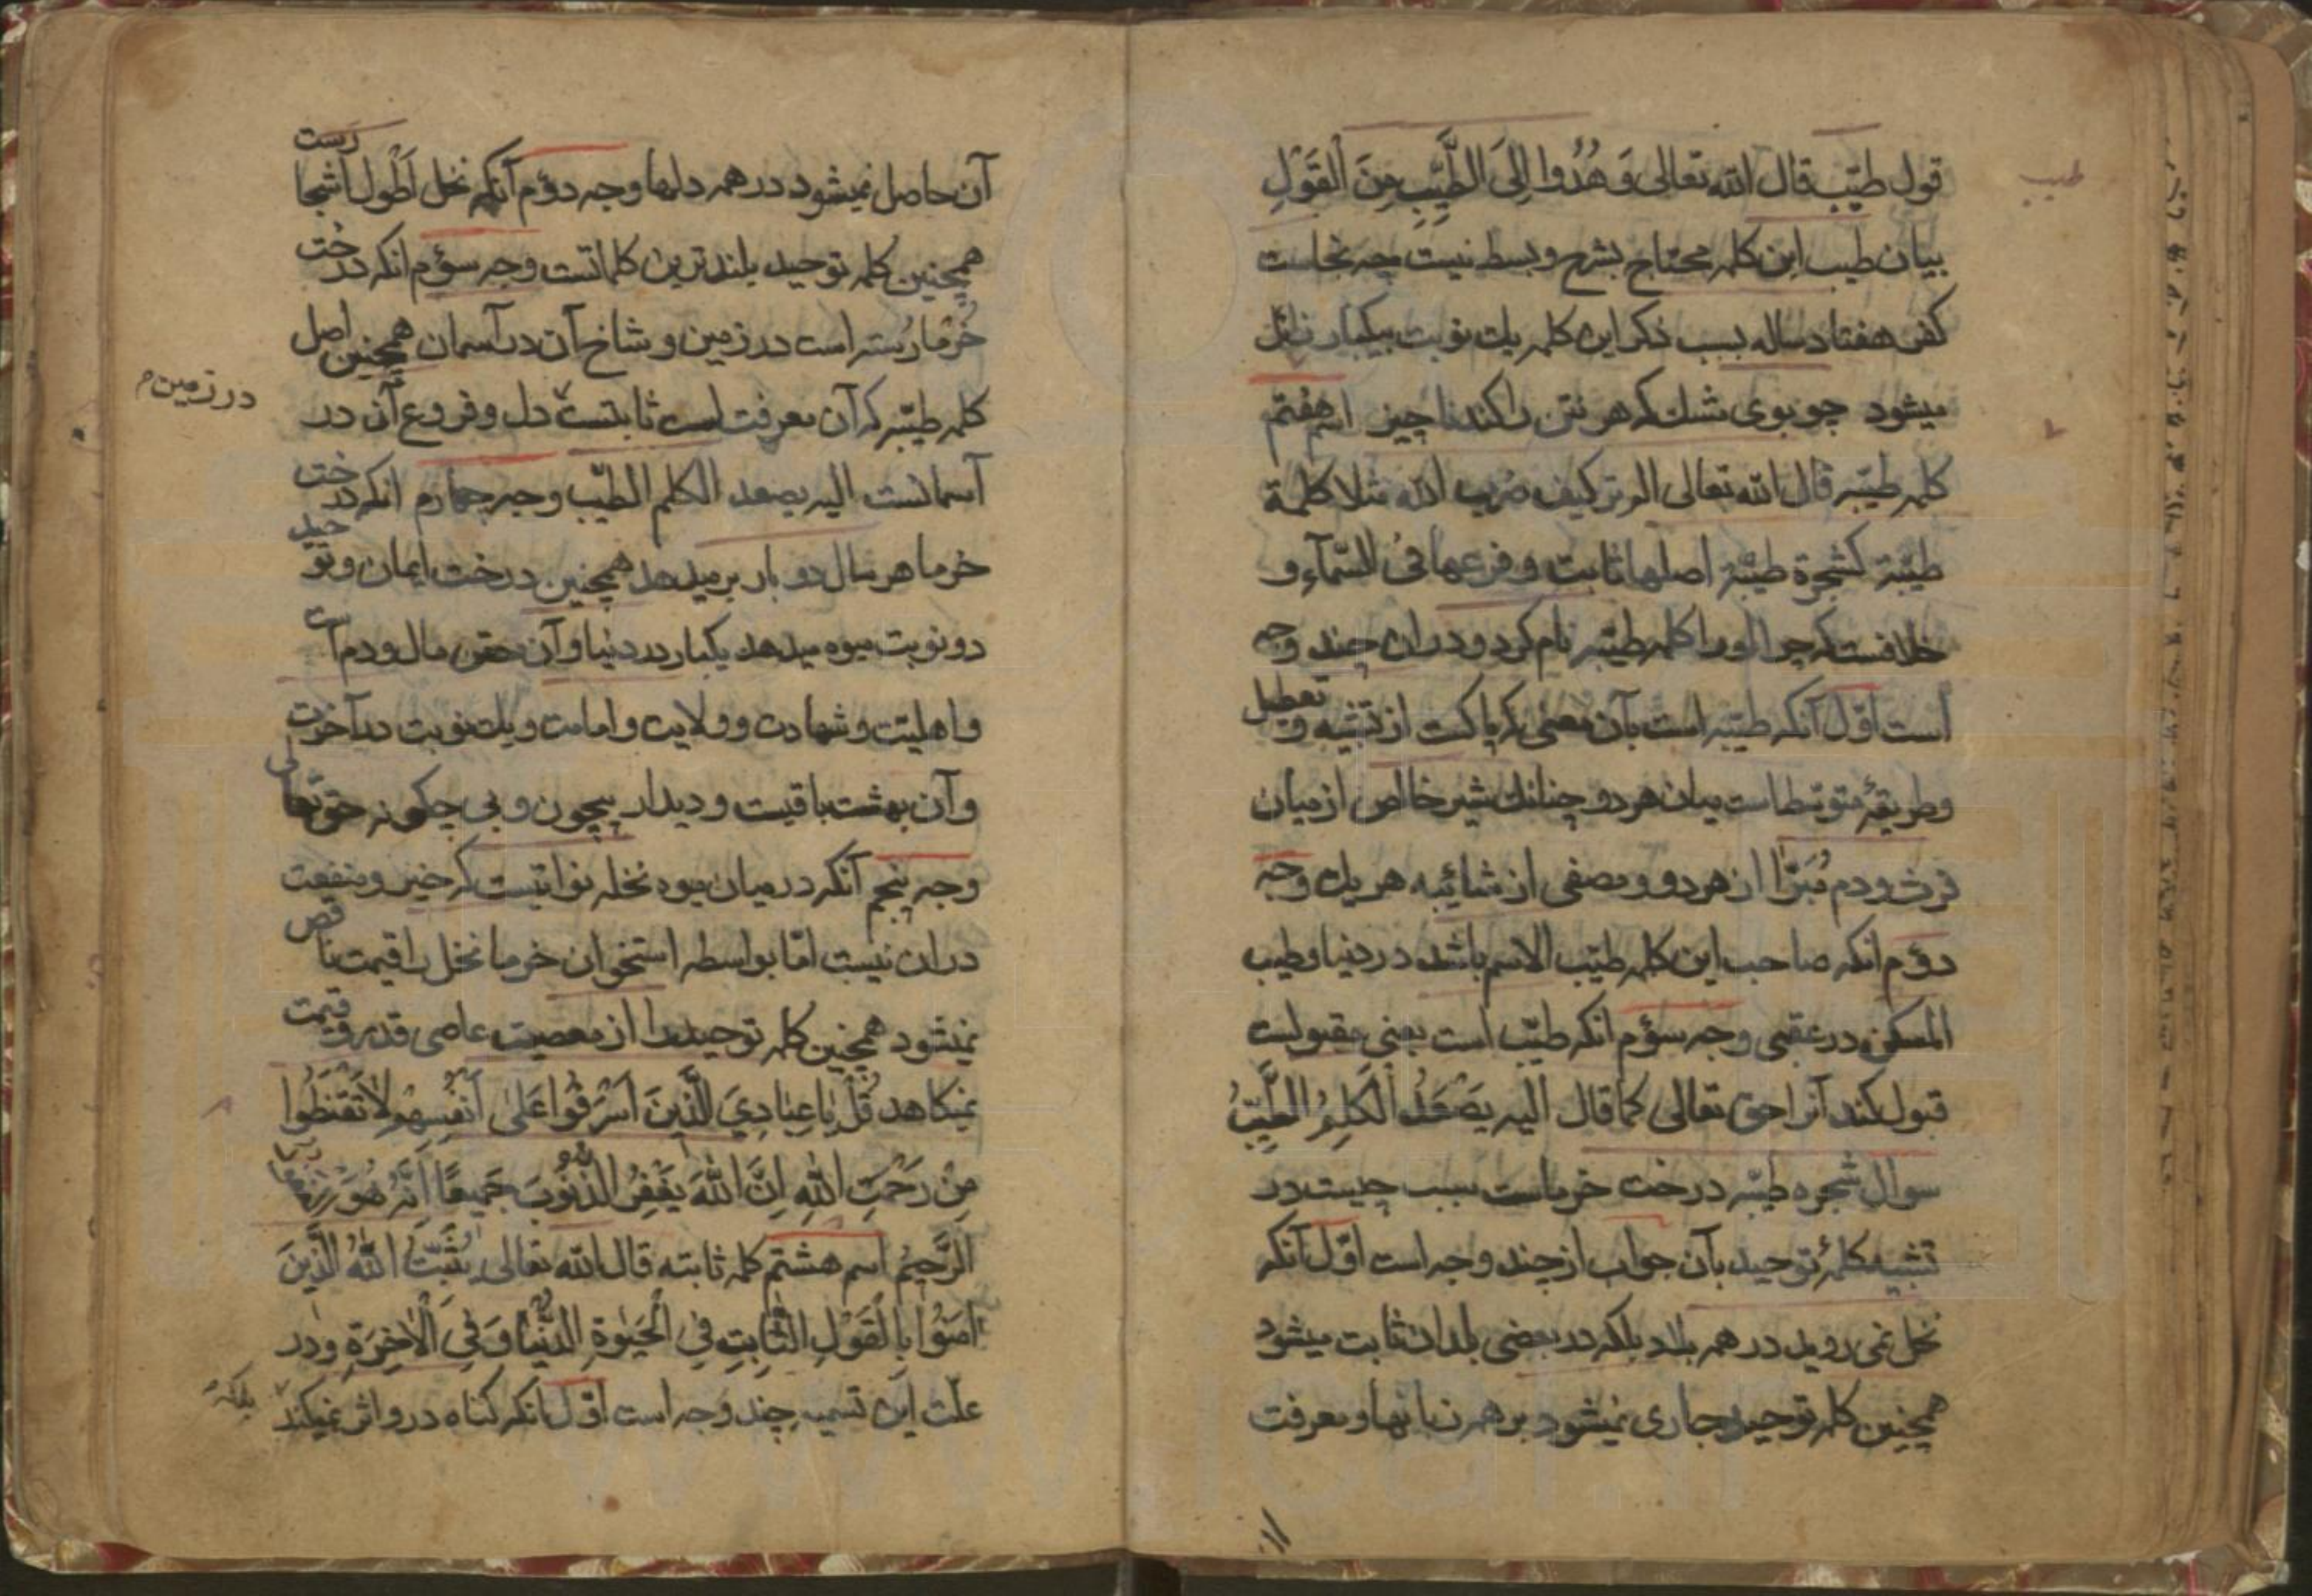 قول طیّب قال الله تعالی وَ هُدُوا اِلَی الطَّیِّبِ مِنَ الْقَوْلِ
بیان طیب این کلمه محتاج بشرح و بسط نیست چه نجاست
کفر هفتاد ساله بسبب ذکر این کلمه یك نوبت بیکبار زائل
میشود چو بوی مشك که هر نتن را کند ناچیز اسم هفتم
کلمه طیّبه قال الله تعالی الم تر کیف ضرب الله مثلا کلمة
طیّبة کشجرة طیّبة اصلها ثابت و فرعها فی السّمآء و
خلافست که چرا اورا کلمه طیّبه نام کرد و دران چند وجه
است اوّل آنکه طیّبه است بآن معنی که پاکست از تشبیه و تعطیل
وطریقهٔ متوسّط است میان هر دو چنانك شیر خالص از میان
فرث و دم مُبَرّا از هر دو و مصفی از شائبه هر یك وجه
دوّم انکه صاحب این کلمه طیّب الاسم باشد در دنیا و طیب
المسکن در عقبی وجه سوّم انکه طیّب است یعنی مقبولست
قبول کند آنرا حق تعالی کما قال الیه یَصْعَدُ الْکَلِمُ الطَّیِّبُ
سوال شجره طیّبه درخت خرماست سبب چیست در
تشبیه کلمهٔ توحید بآن جواب از چند وجه است اوّل آنکه
نخل نمی روید در همه بلاد بلکه در بعضی بلدان ثابت میشود
همچنین کلمه توحید جاری نمیشود بر همه زبانها و معرفت
طیب
آن حاصل نمیشود در همه دلها وجه دوّم آنکه نخل اَطْول اشجا رست
همچنین کلمه توحید بلندترین کلماتست وجه سوّم انکه درخت
خُرما رُسته است در زمین و شاخ آن در آسمان همچنین اصل
کلمه طیّبه که آن معرفت است ثابتست دل و فروع آن در
در زمین
آسمانست الیه یصعد الکلم الطیّب وجه چهارم انکه درخت
خرما هر سال دو بار بر میدهد همچنین درخت ایمان و توحید
دو نوبت میوه میدهد یکبار در دنیا و آن حقن مال و دم است
و اهلیّت و شهادت و ولایت و امامت و یك نوبت در آخرت
و آن بهشت باقیست و دیدار بیچون و بی چکونه حق تعالی
وجه پنجم آنکه در میان میوه نخله نواتیست که خیر و منفعت
دران نیست امّا بواسطه استخوان خرما نخل را قیمت ناقص
نمیشود همچنین کلمه توحید را از معصیت عاصی قدر و قیمت
نمیکاهد قُلْ یَا عِبَادِیَ الَّذِینَ اَسْرَفُوا عَلٰی اَنْفُسِهِمْ لَا تَقْنَطُوا
مِنْ رَحْمَتِ اللهِ اِنَّ اللهَ یَغْفِرُ الذُّنُوبَ جَمِیعًا اِنَّهُ هُوَ الْغَفُورُ
الرَّحِیمُ اسم هشتم کلمه ثابته قال الله تعالی یُثَبِّتُ اللهُ الَّذِینَ
اٰمَنُوا بِالْقَوْلِ الثَّابِتِ فِی الْحَیٰوةِ الدُّنْیَا وَ فِی الْاٰخِرَةِ و در
علّت این تسمیه چند وجه است اوّل انکه کناه در و اثر نمیکند
بلکه